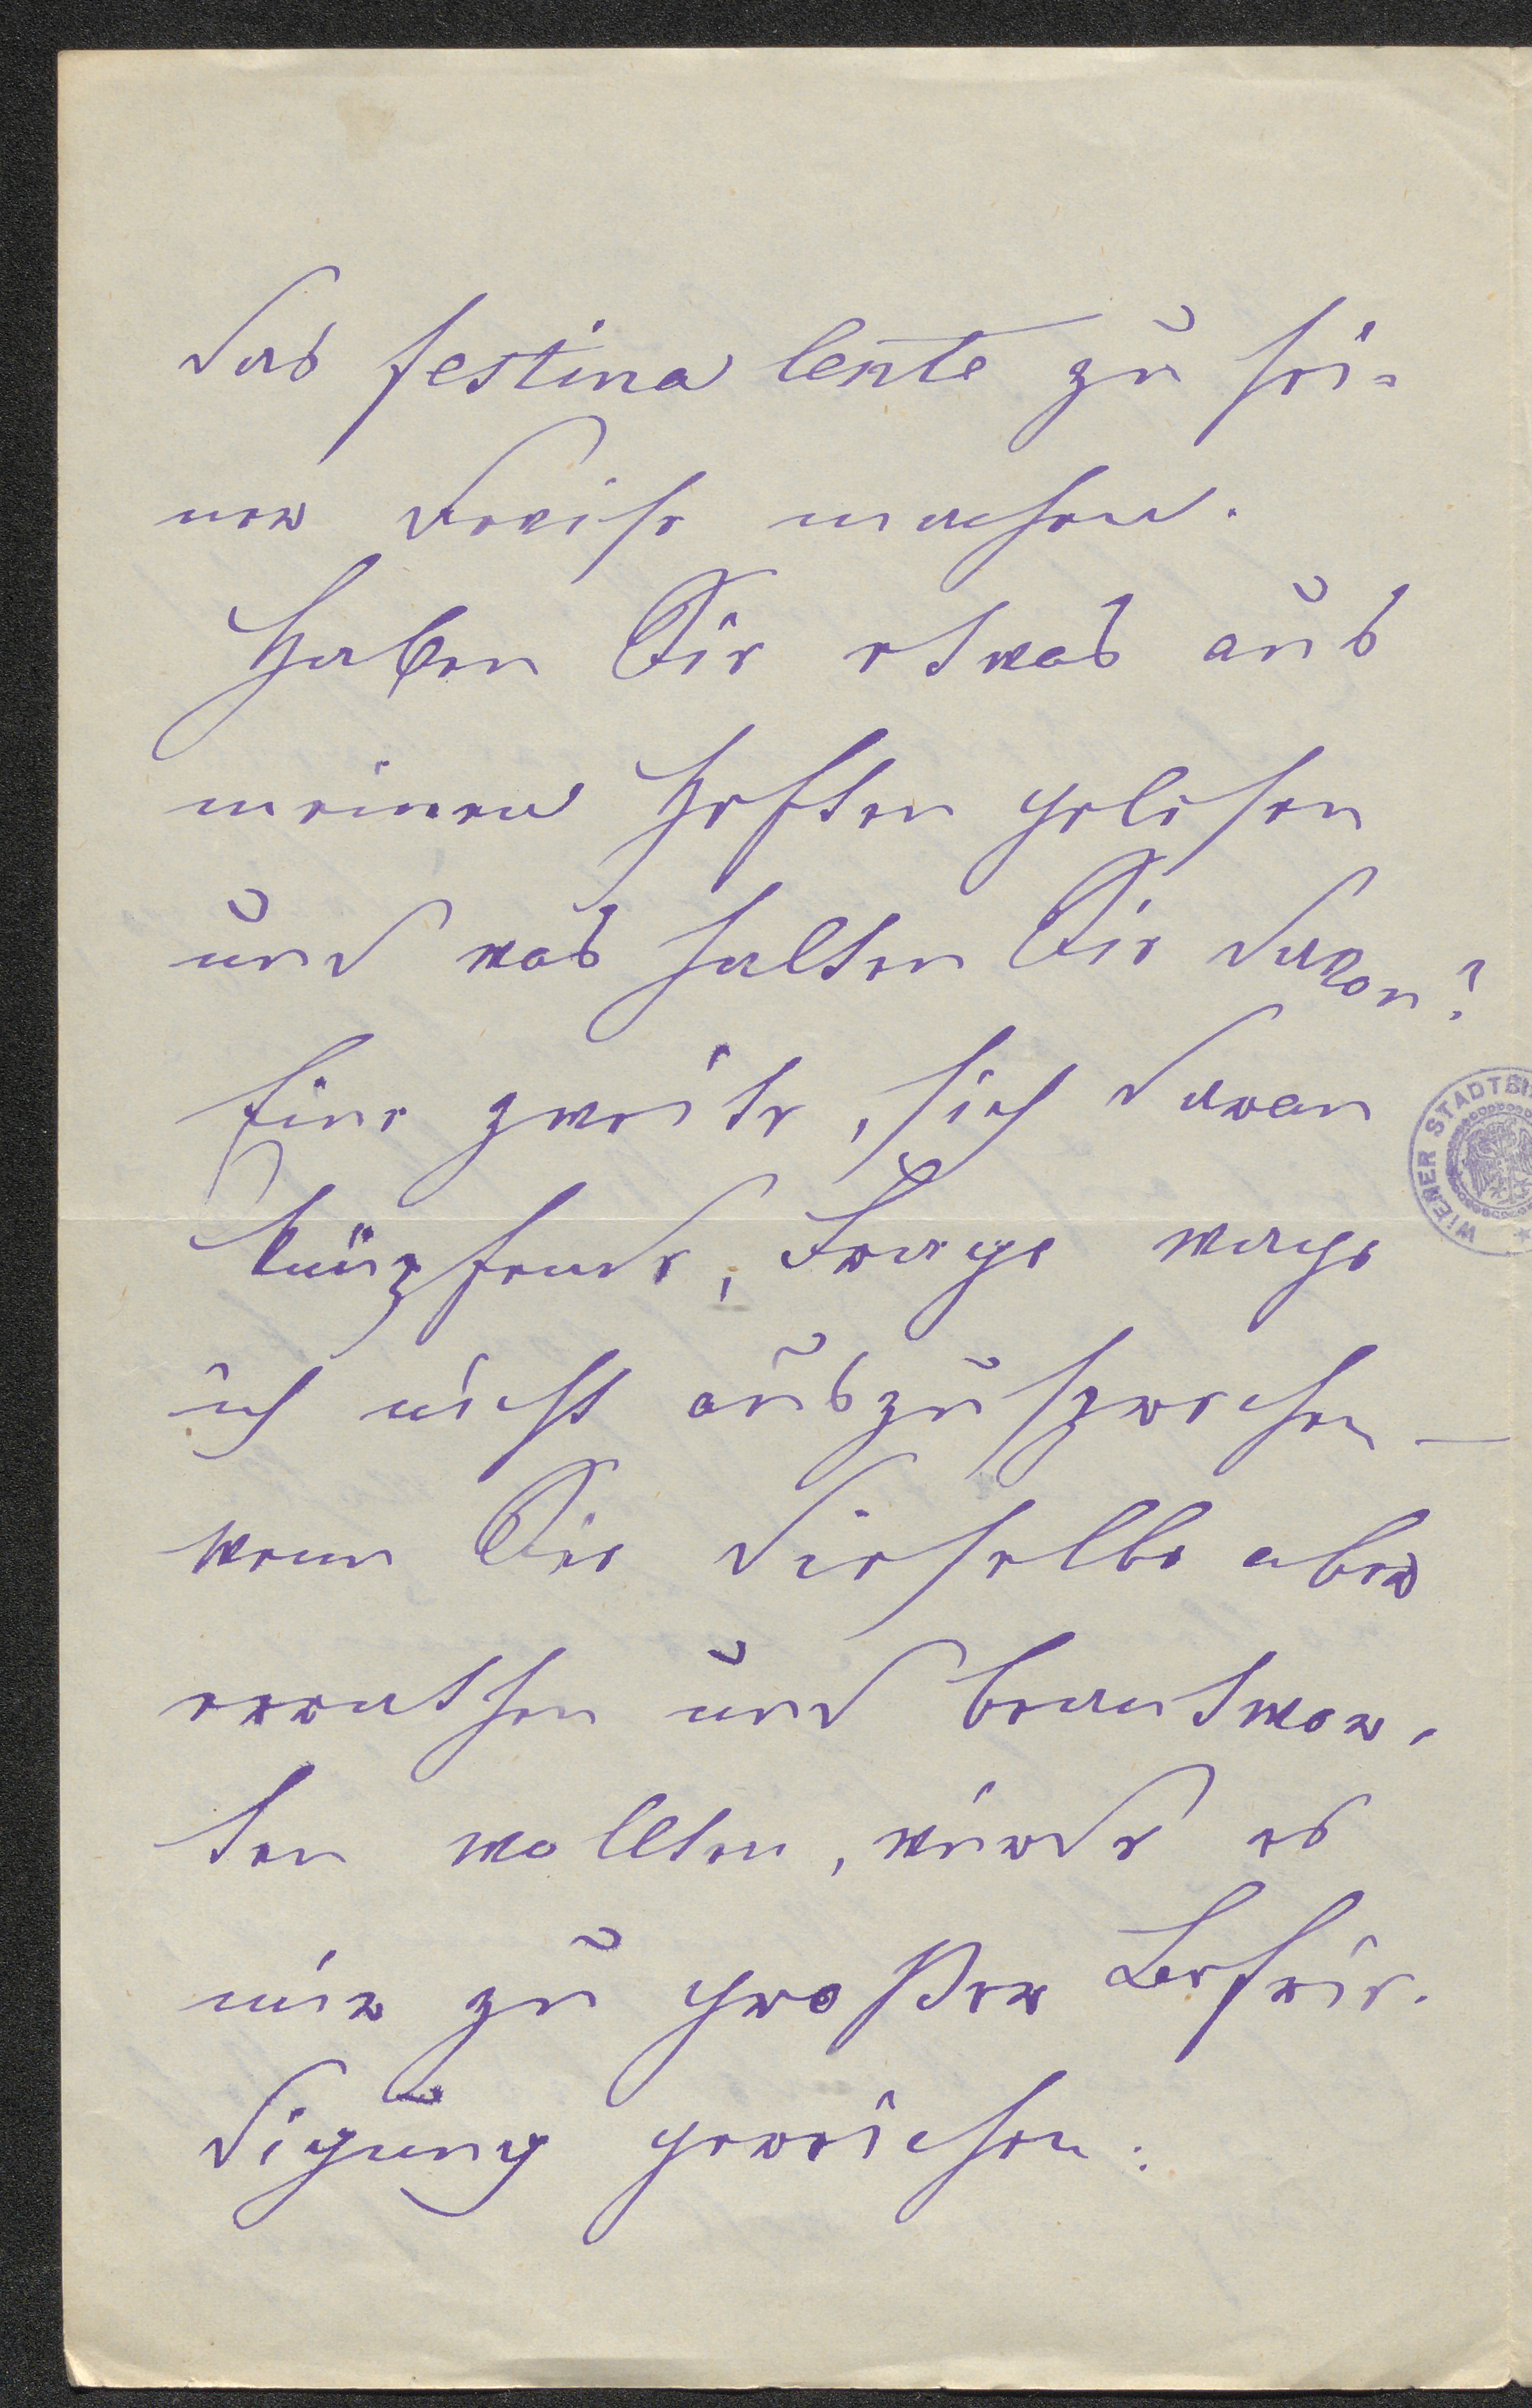 das festina lente zu sei-
ner Devise machen.
Haben Sie etwas aus
meinen Heften gelesen
und was halten Sie davon?
Eine zweite, sich daran
knüpfende, Frage wage
ich nicht auszusprechen –
wenn Sie dieselbe aber
errathen und beantwor-
ten wollten, würde es
mir zu großer Befrie-
digung gereichen.
WIENER STADTBI